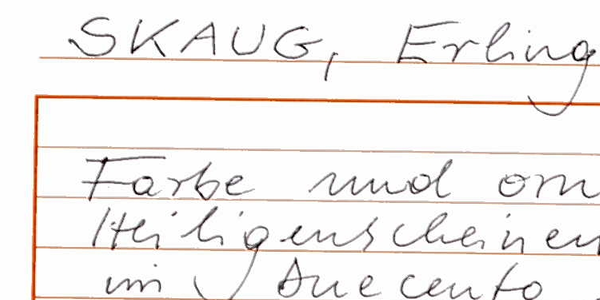 SKAUG, Erling
Farbe und orn
Heiligenscheinen
im Duecento